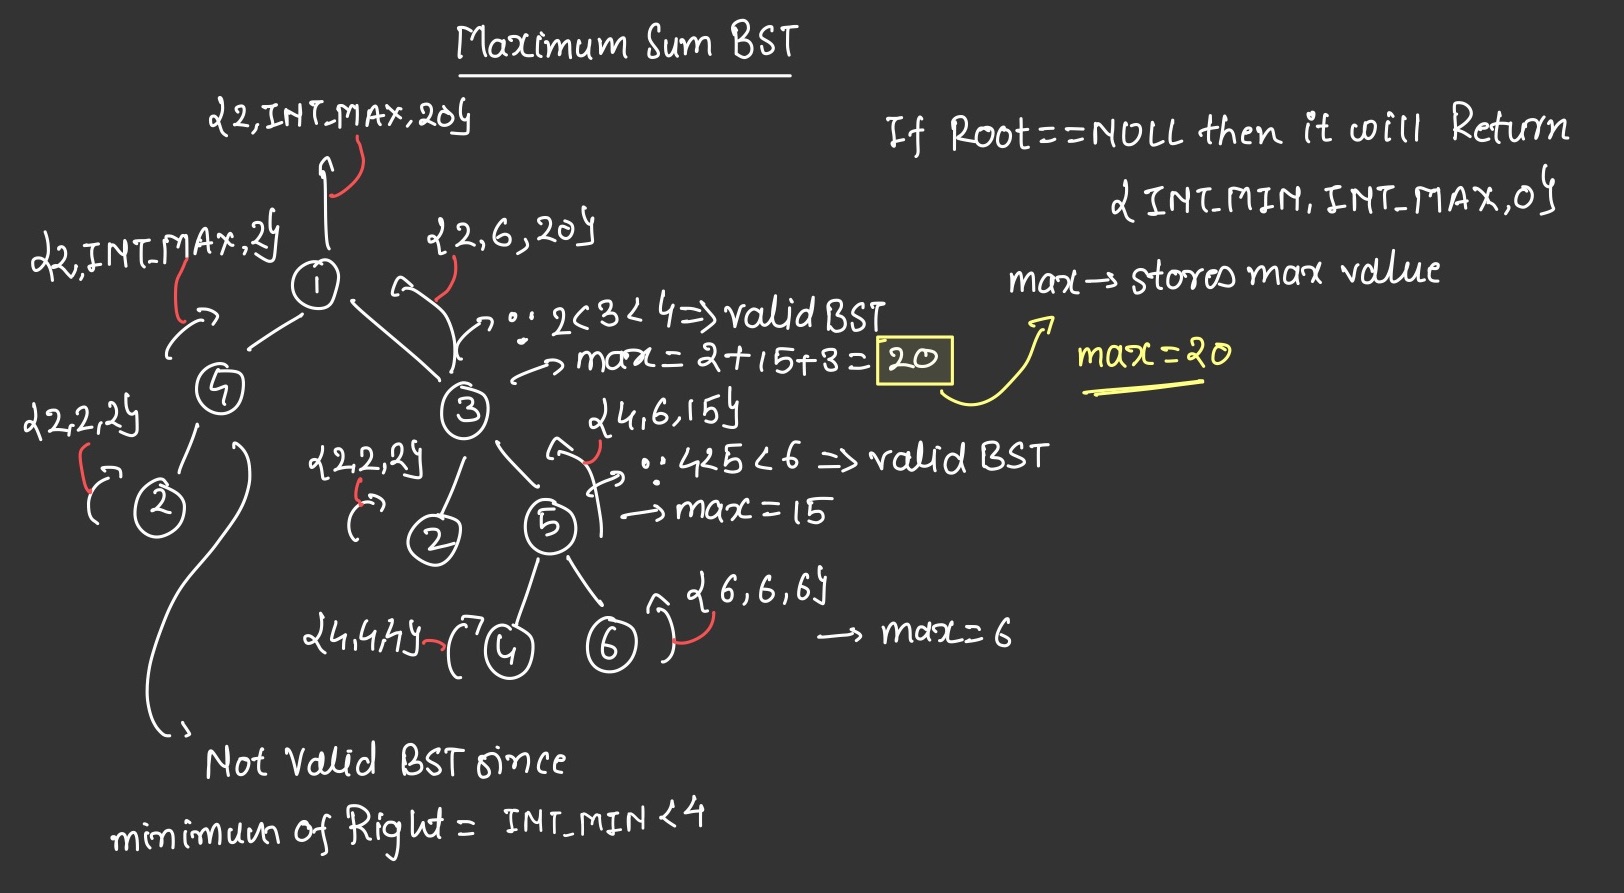 Maximum Sum BST
{2,INT_MAX,20}
If Root==NULL then it will Return
{INT_MIN, INT_MAX,0}
{2,INT_MAX,2}
{2,6,20}
max→ stores max value
1
∵ 2<3<4=>valid BST
→ max = 2+15+3= 20
max=20
4
{2,2,2}
3
{4,6,15}
{2,2,2}
∵ 4<5<6 => valid BST
2
2
5
→ max=15
{6,6,6}
{4,4,4}
4
6
→ max=6
Not Valid BST since
minimum of Right = INT_MIN <4